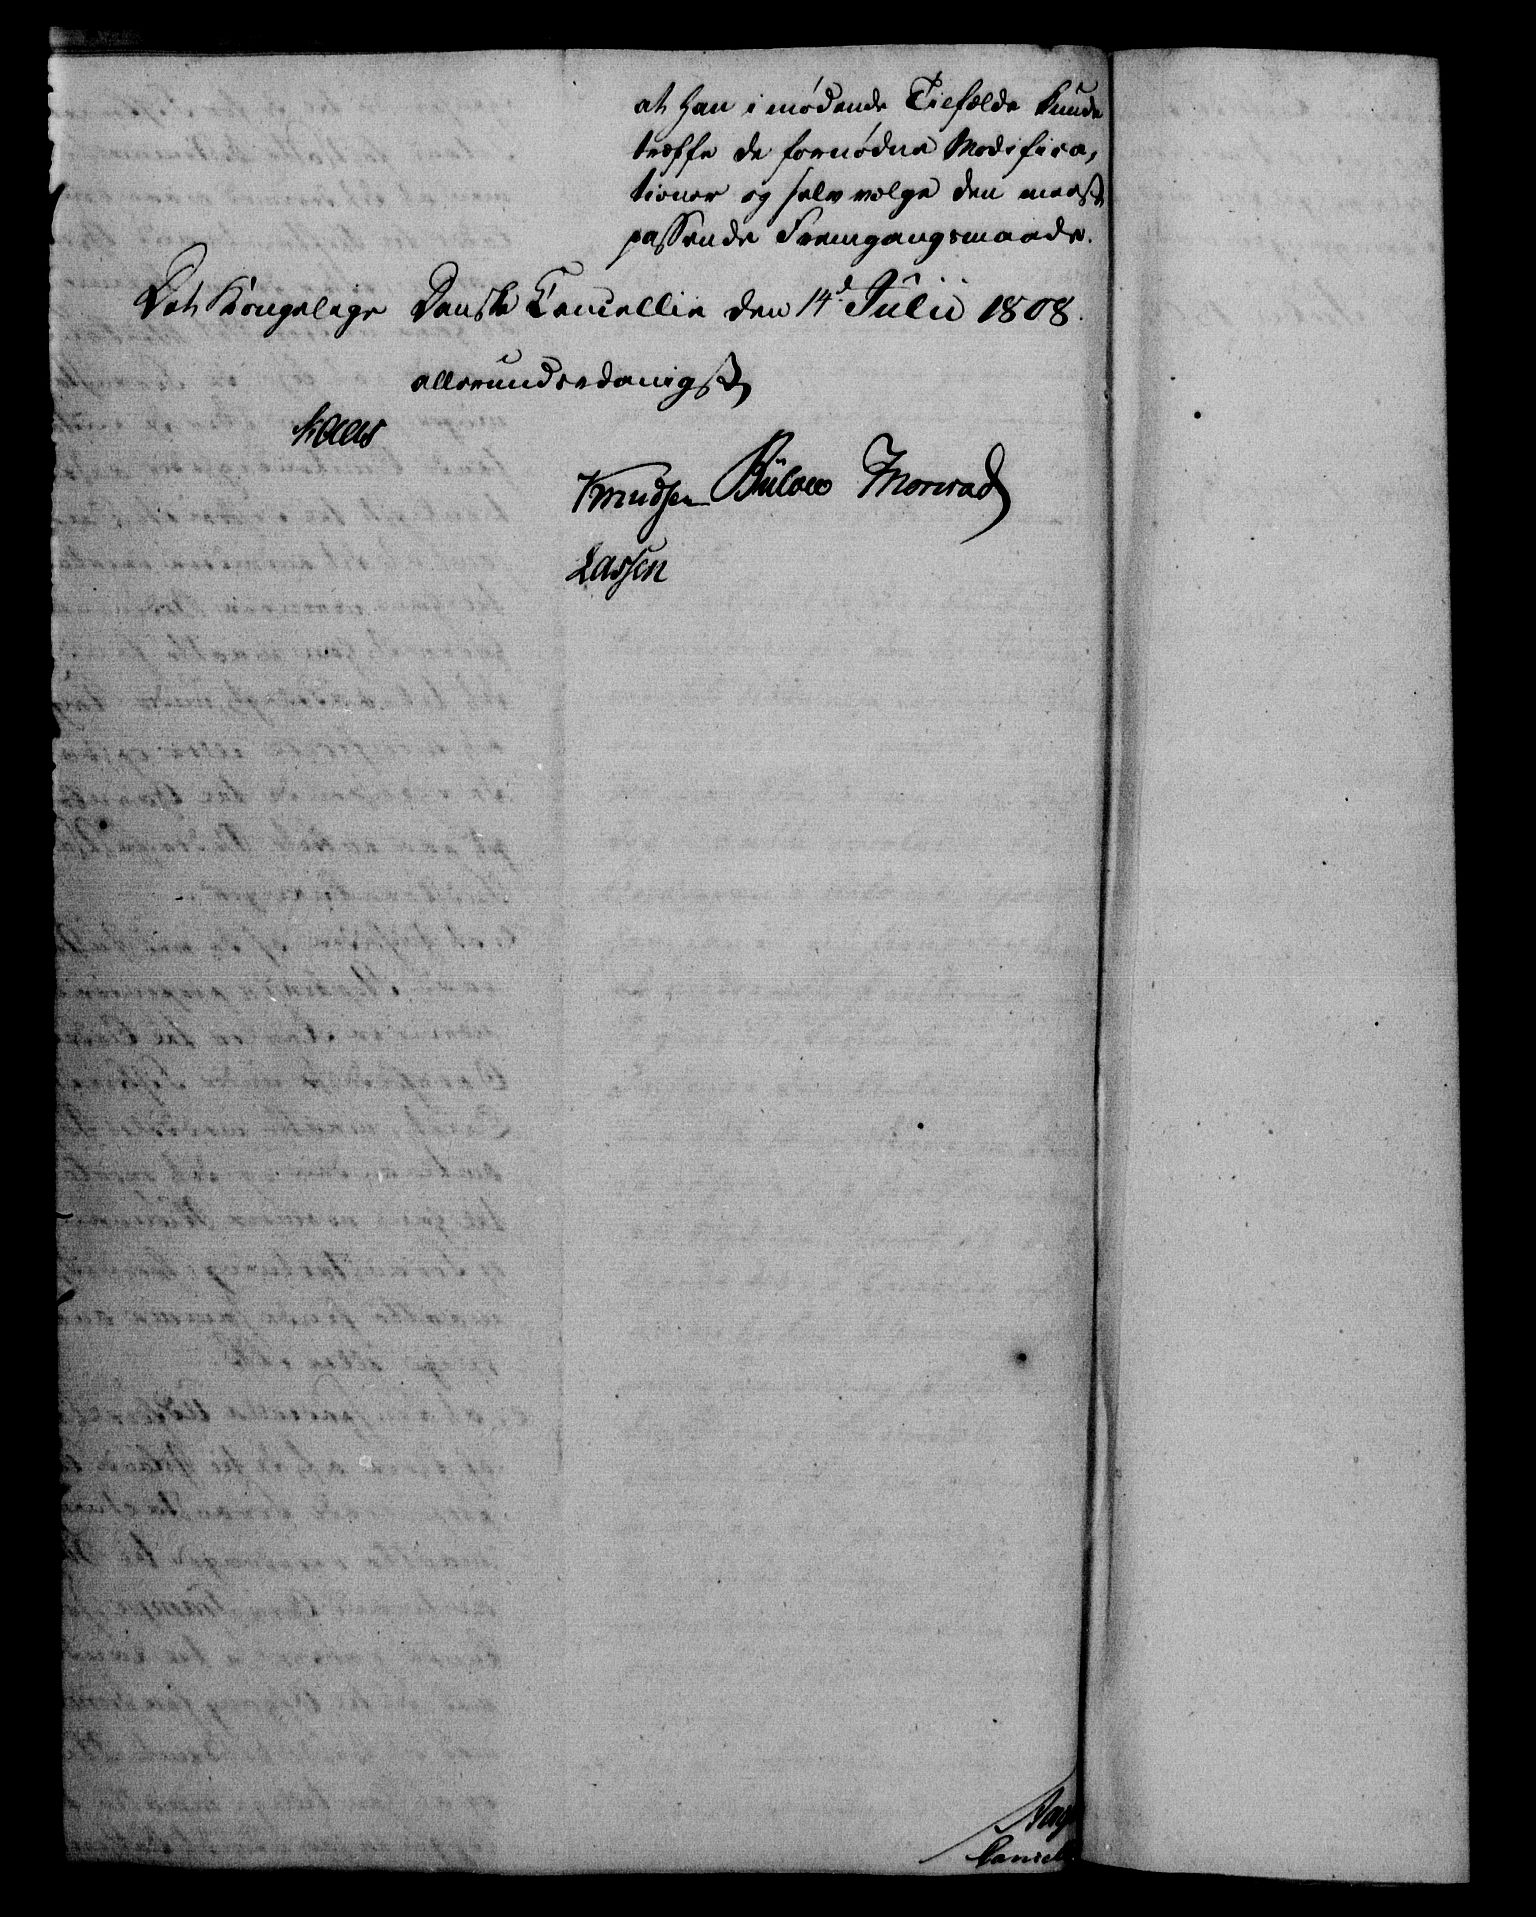 at han i mødende Tilfælde kunde
træffe de fornødne Modifica,
tioner og selv vælge den meest
passende Fremgangsmaade.
Det Kongelige Danske Cancellie den 14d Julii 1808.
allerunderdanigst
Kaas
Knudsen Bülow Monrad
Lassen